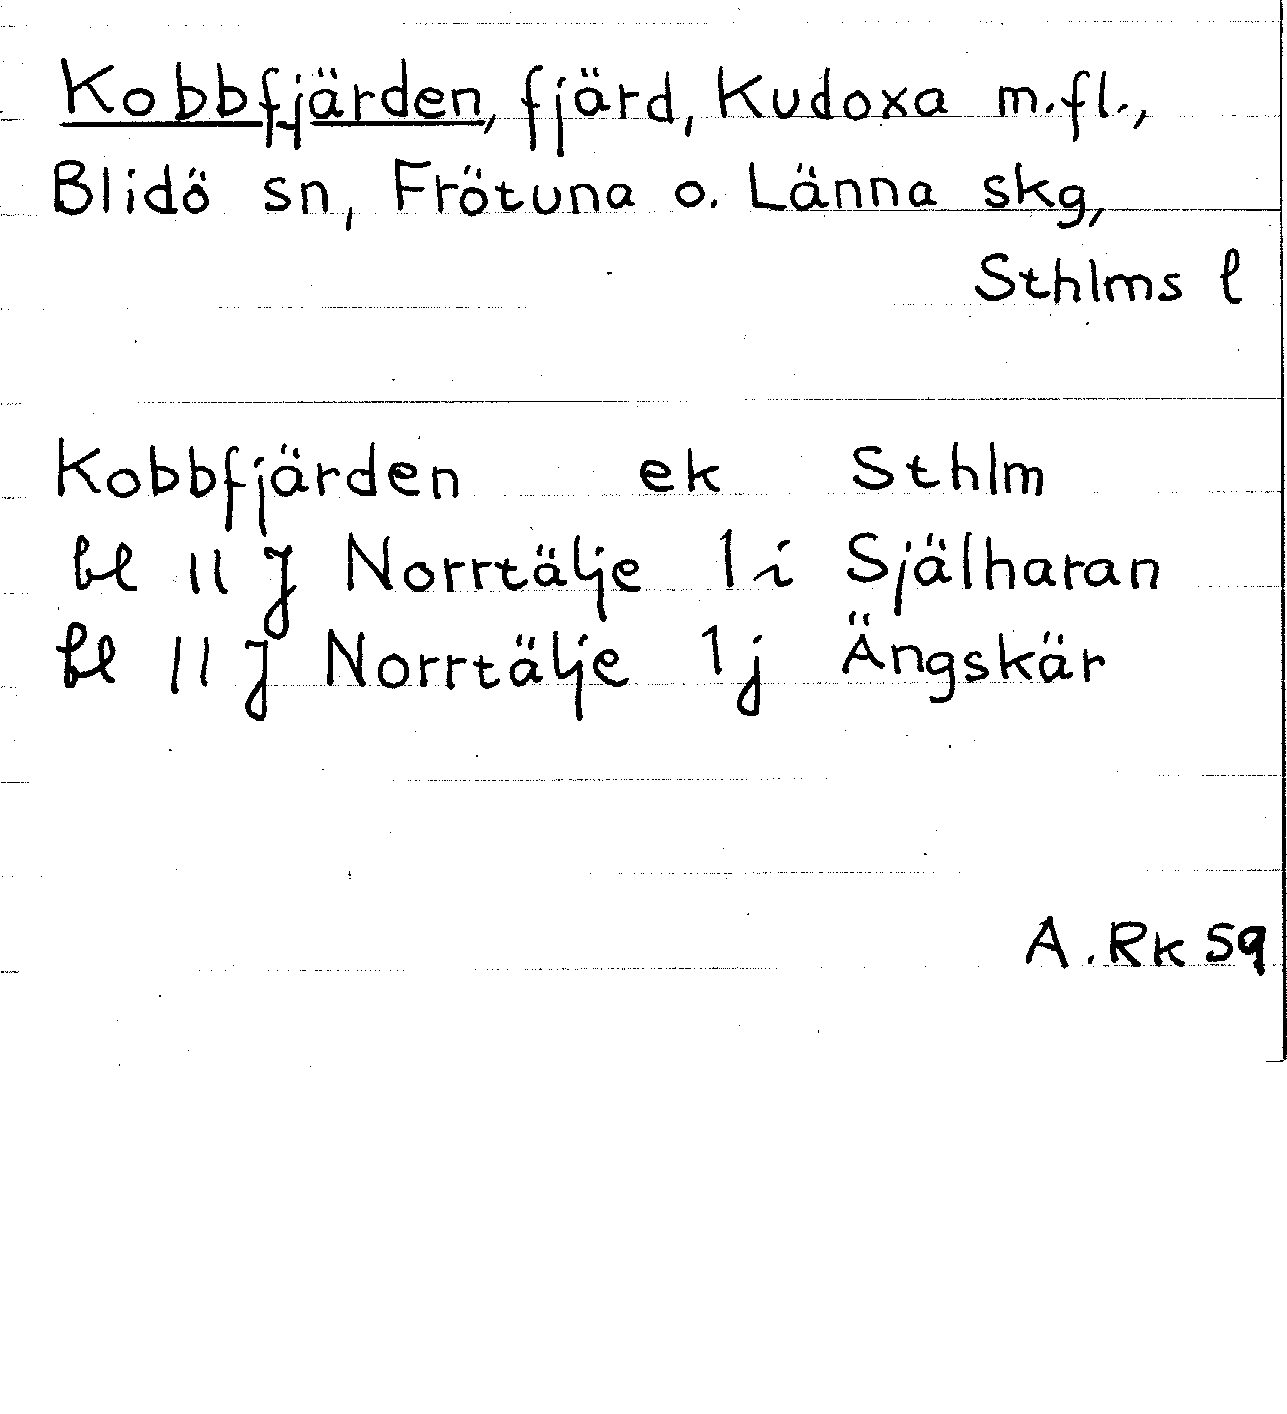 Kobbfjärden, fjärd, Kudoxa m.fl.,
Blidö sn, Frötuna o. Länna skg,
Sthlms l
Kobbfjärden ek Sthlm
bl 11 J Norrtälje 1i Själharan
bl 11 J Norrtälje 1j Ängskär
A.Rk 59